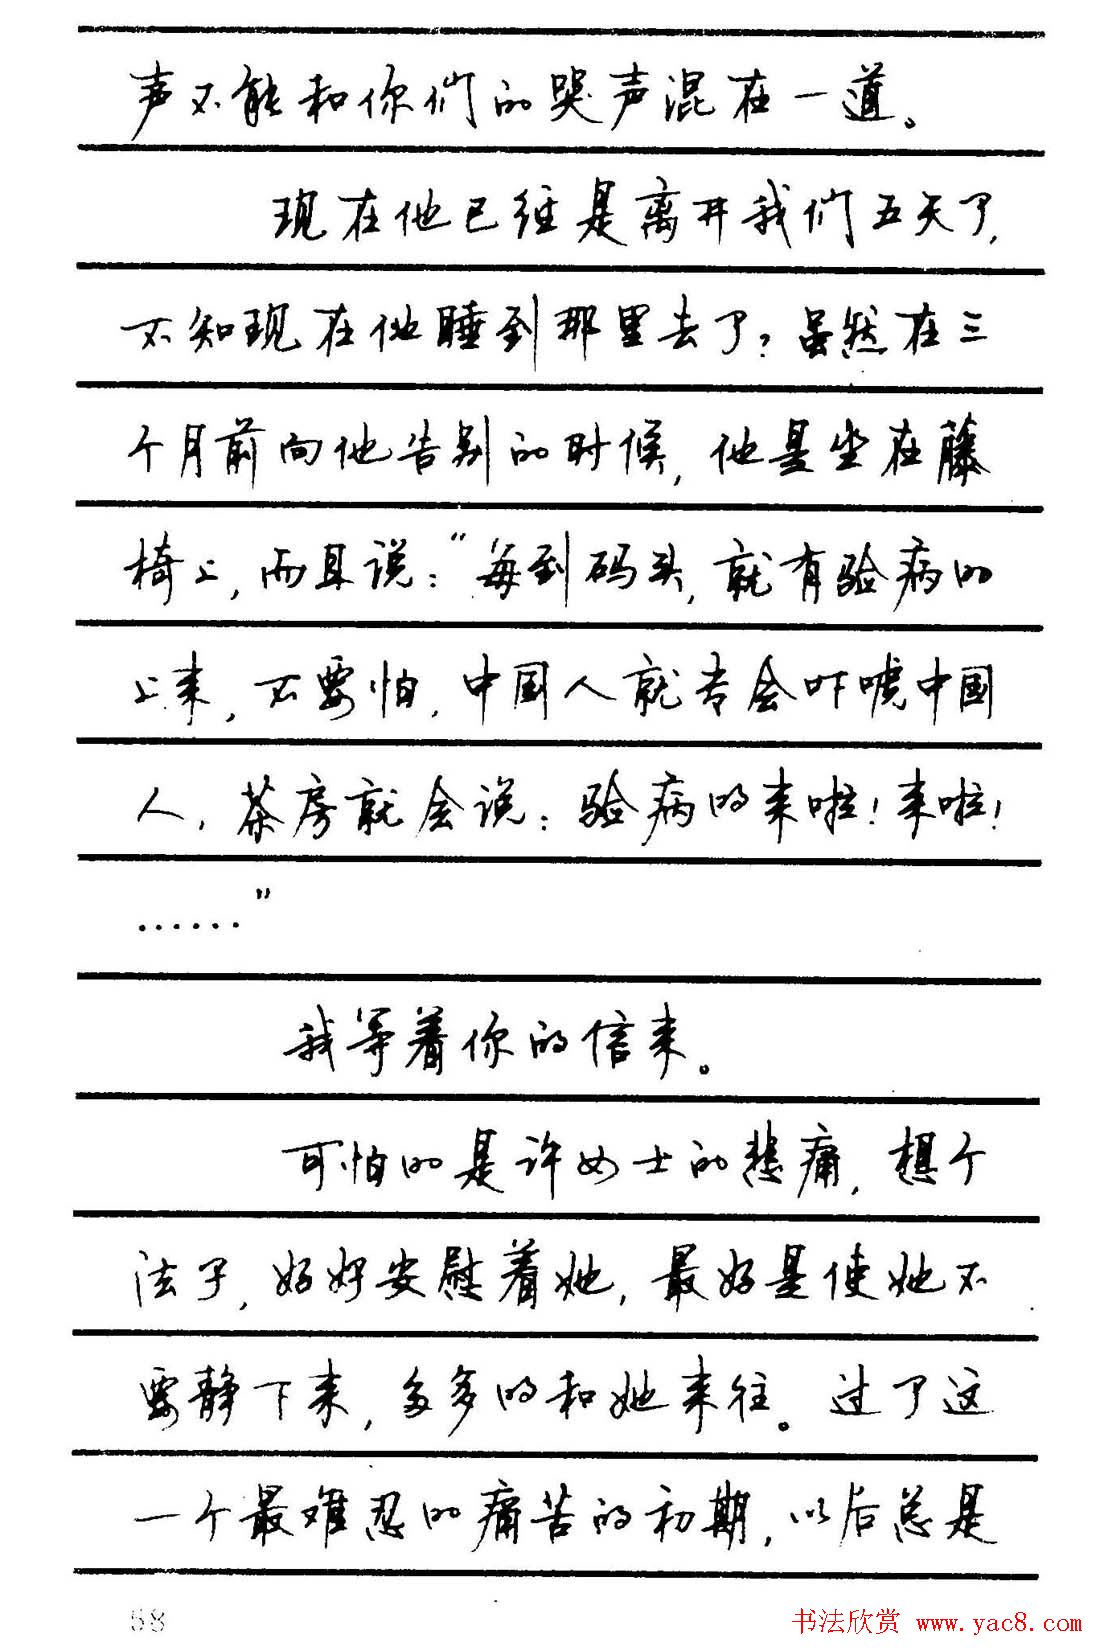 声不能和你们的哭声混在一道。
现在他已经是离开我们五天了,
不知现在他睡到那里去了?虽然在三
个月前向他告别的时候,他是坐在藤
椅上,而且说:“每到码头,就有验病的
上来,不要怕,中国人就专会吓唬中国
人,茶房就会说:验病的来啦!来啦!
……”
我等着你的信来。
可怕的是许女士的悲痛,想个
法子,好好安慰着她,最好是使她不
要静下来,多多的和她来往。过了这
一个最难忍的痛苦的初期,以后总是
58
书法欣赏 www.yac8.com